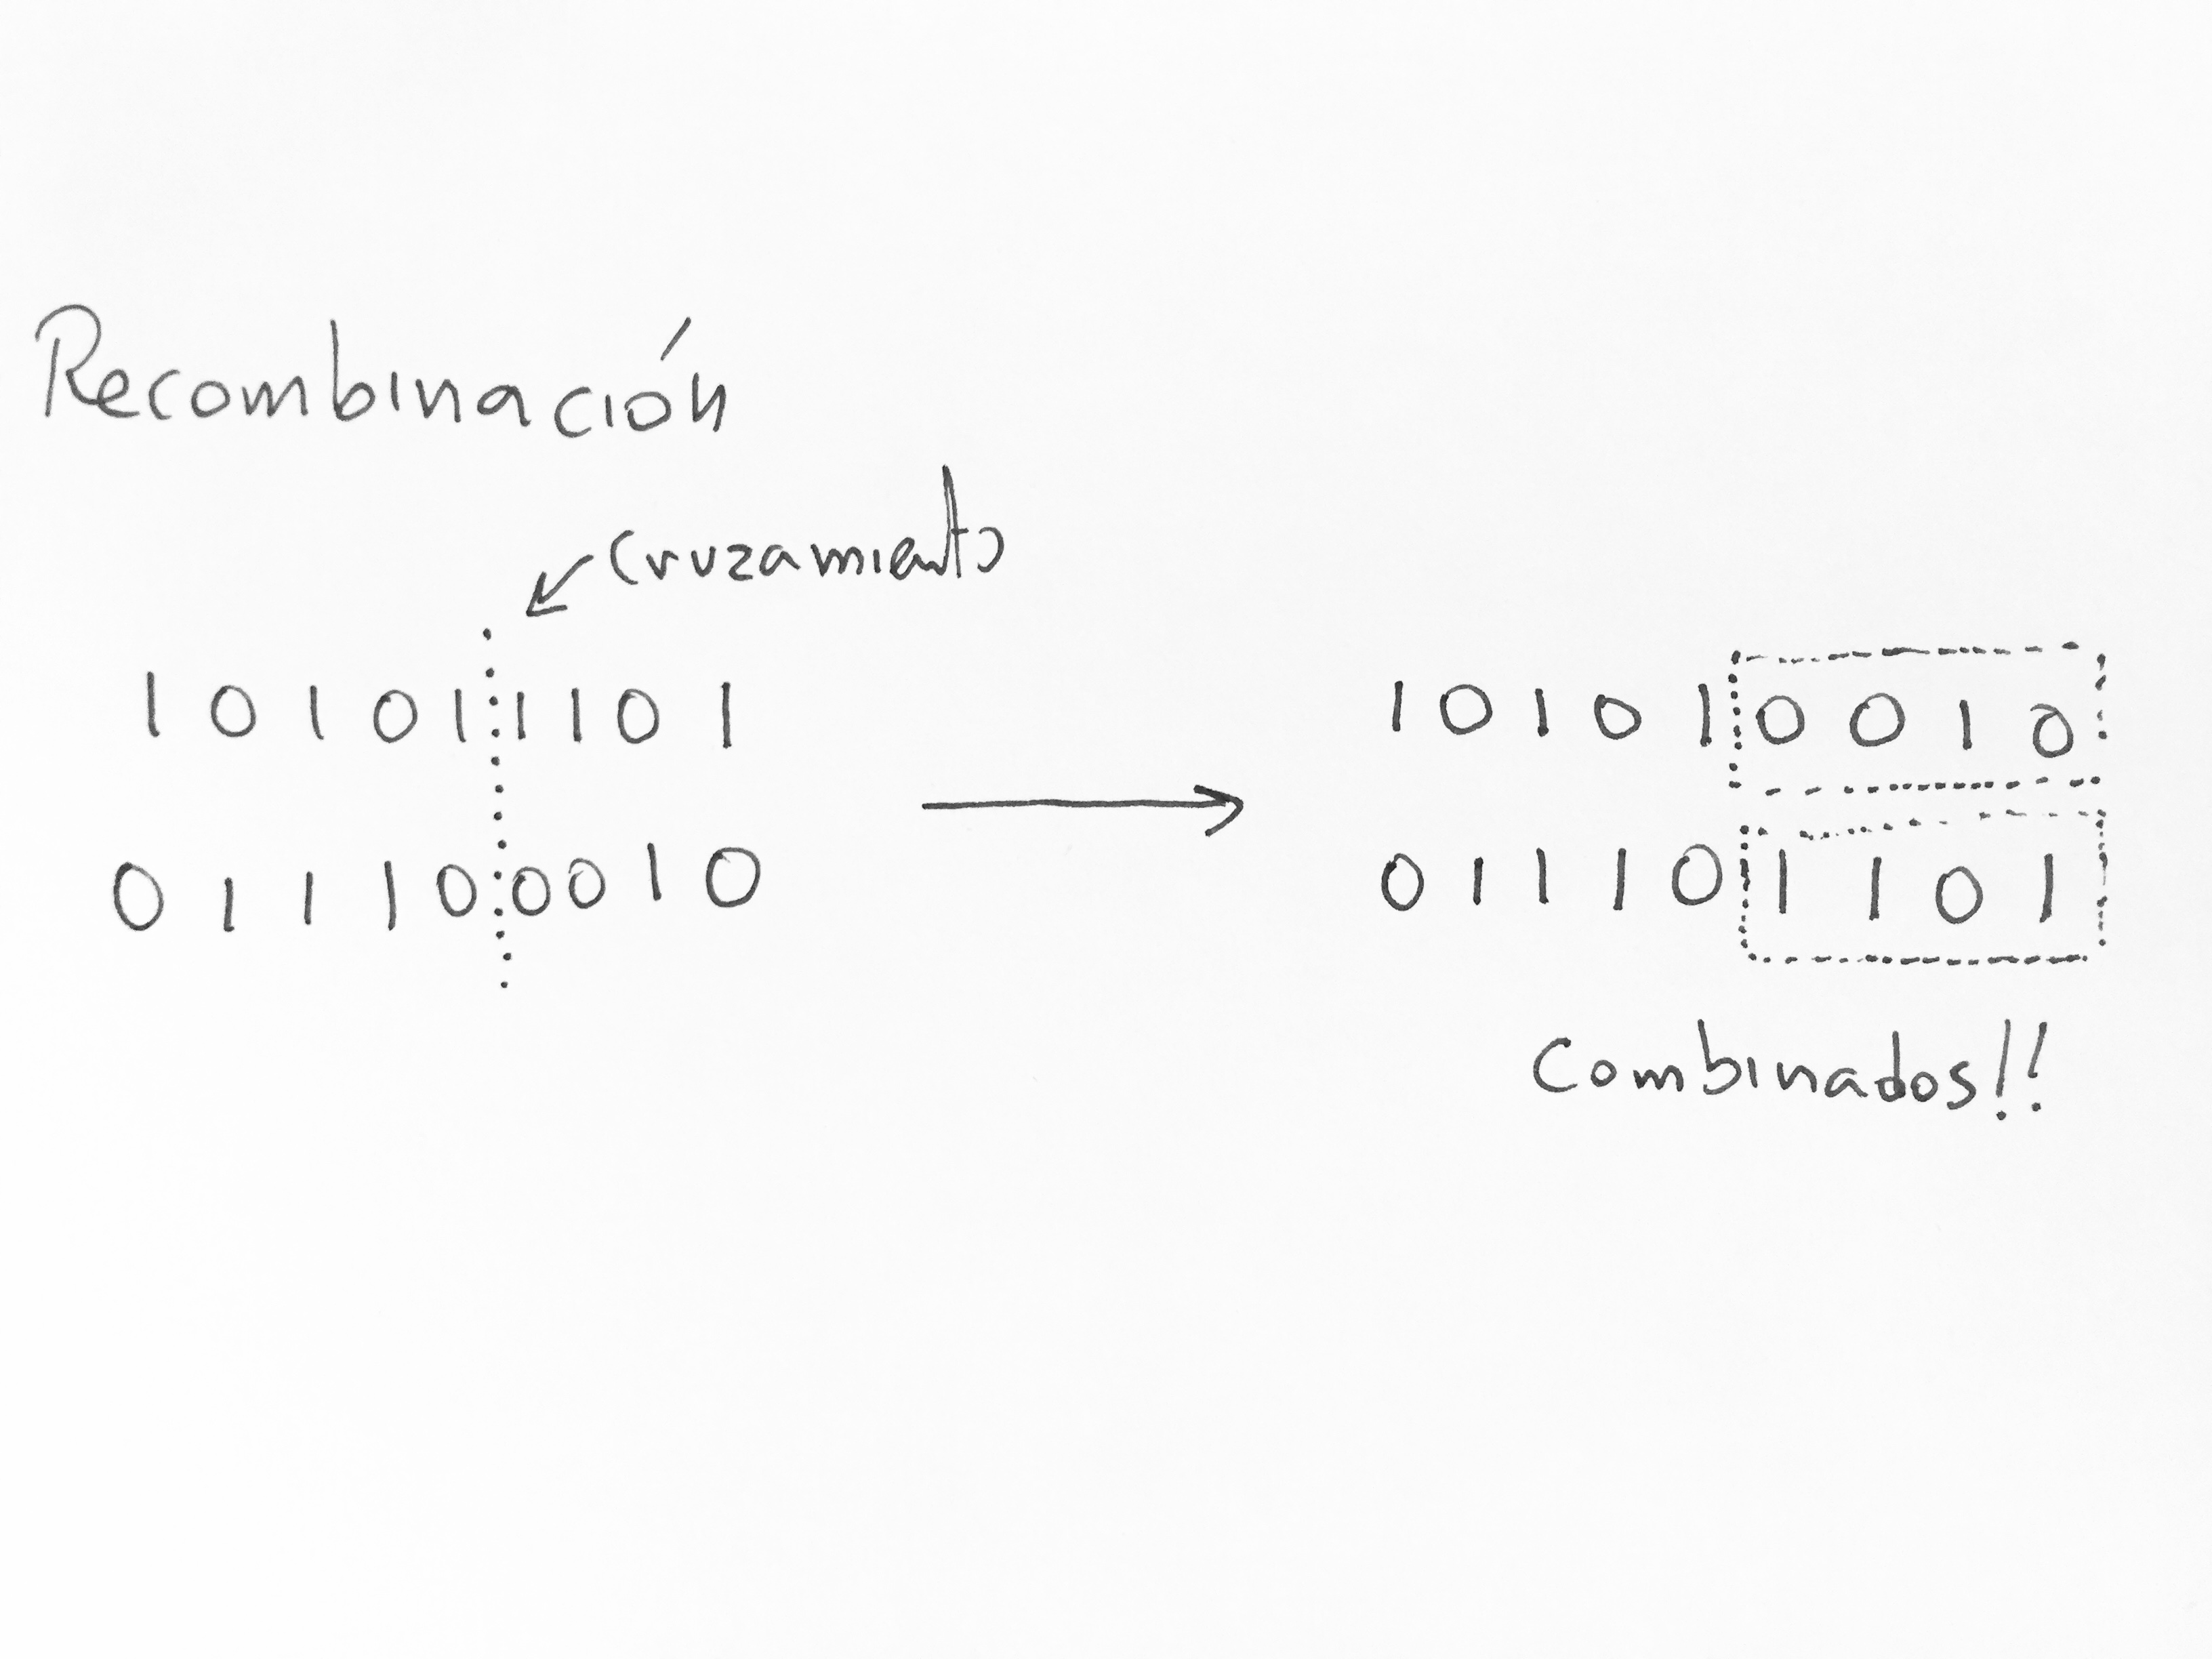 Recombinación
cruzamiento
1 0 1 0 1 1 1 0 1
1 0 1 0 1 0 0 1 0
0 1 1 1 0 0 0 1 0
0 1 1 1 0 1 1 0 1
Combinados!!